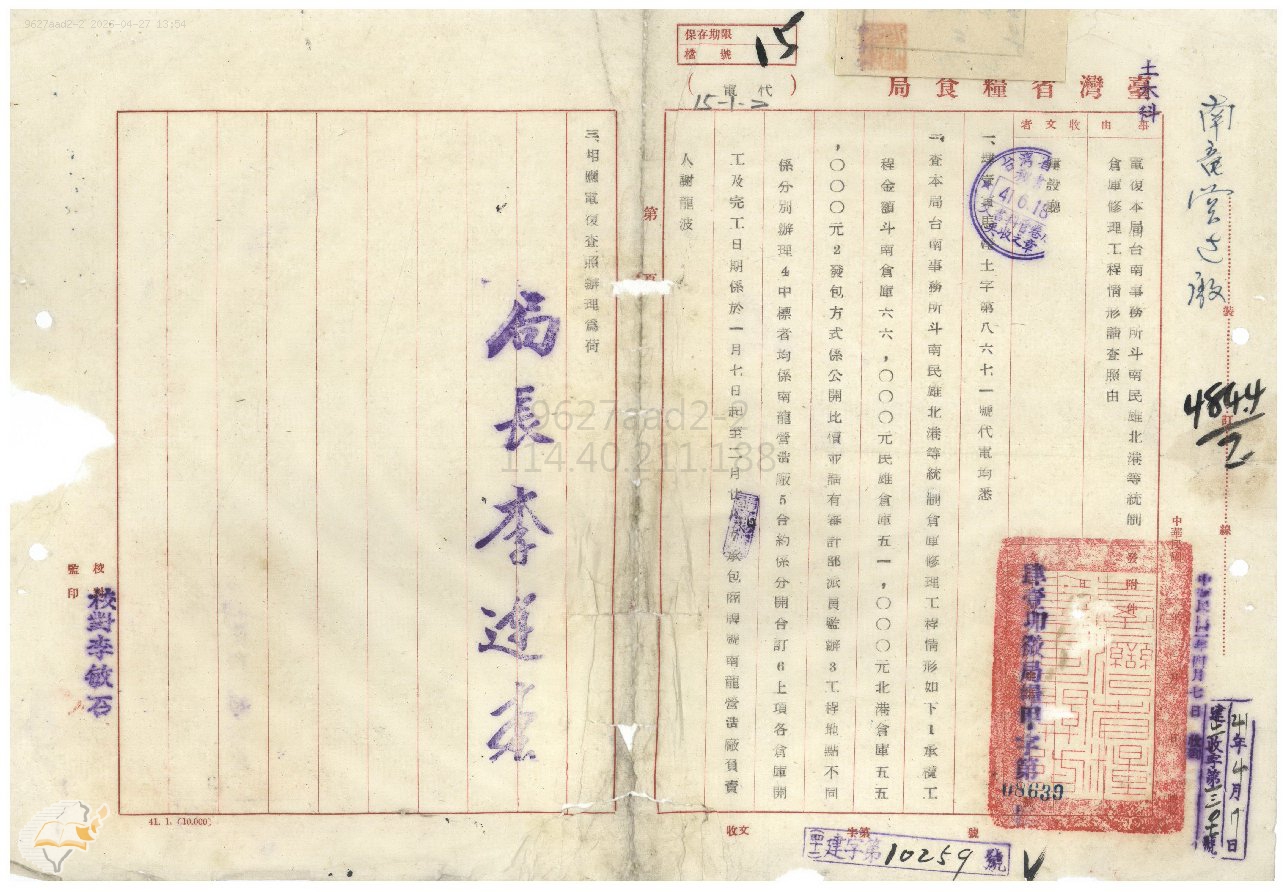 9627aad2-2 2026-04-27 13:54
保存期限
檔號
15
臺灣省糧食局
(代電)
15-1-2
土木科
南龍營造廠
裝
訂
線
4844
事由
收文者
電復本局台南事務所斗南民雄北港等統制
倉庫修理工程情形請查照由
建設廳
41.6.18
土字第八六七一號代電均悉
二、查本局台南事務所斗南民雄北港等統制倉庫修理工程情形如下1承欖工
程金額斗南倉庫六六,〇〇〇元民雄倉庫五一,〇〇〇元北港倉庫五五
,〇〇〇元2發包方式係公開比價並請有審計部派員監辦3工程地點不同
係分別辦理4中標者均係南龍營造廠5合約係分開合訂6上項各倉庫開
工及完工日期係於一月七日起至二月
承包商牌號南龍營造廠負責
人謝龍波
三、相應電復查照辦理為荷
局長李連春
第
頁
附件
中華民國
中華民國四一年四月七日
肆壹卯徵局輔甲字第
08639
41年4月7日
建收字第
校對
監印
校對李敏石
41. 1. (10.000)
收文
字第
號
建字第10259號
9627aad2-2
114.40.211.138